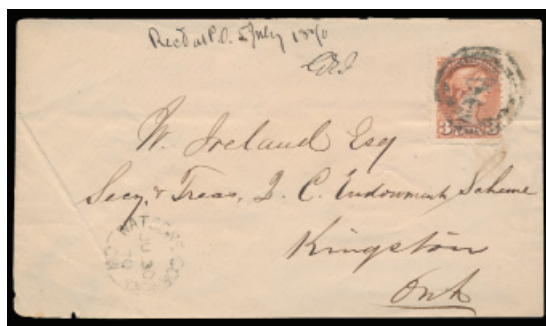 Recd at P.O. 5 July 1870
W. Ireland Esq
Secy. & Treas. Q. C. Endowment Scheme
Kingston
Ont
3 3
JU 30